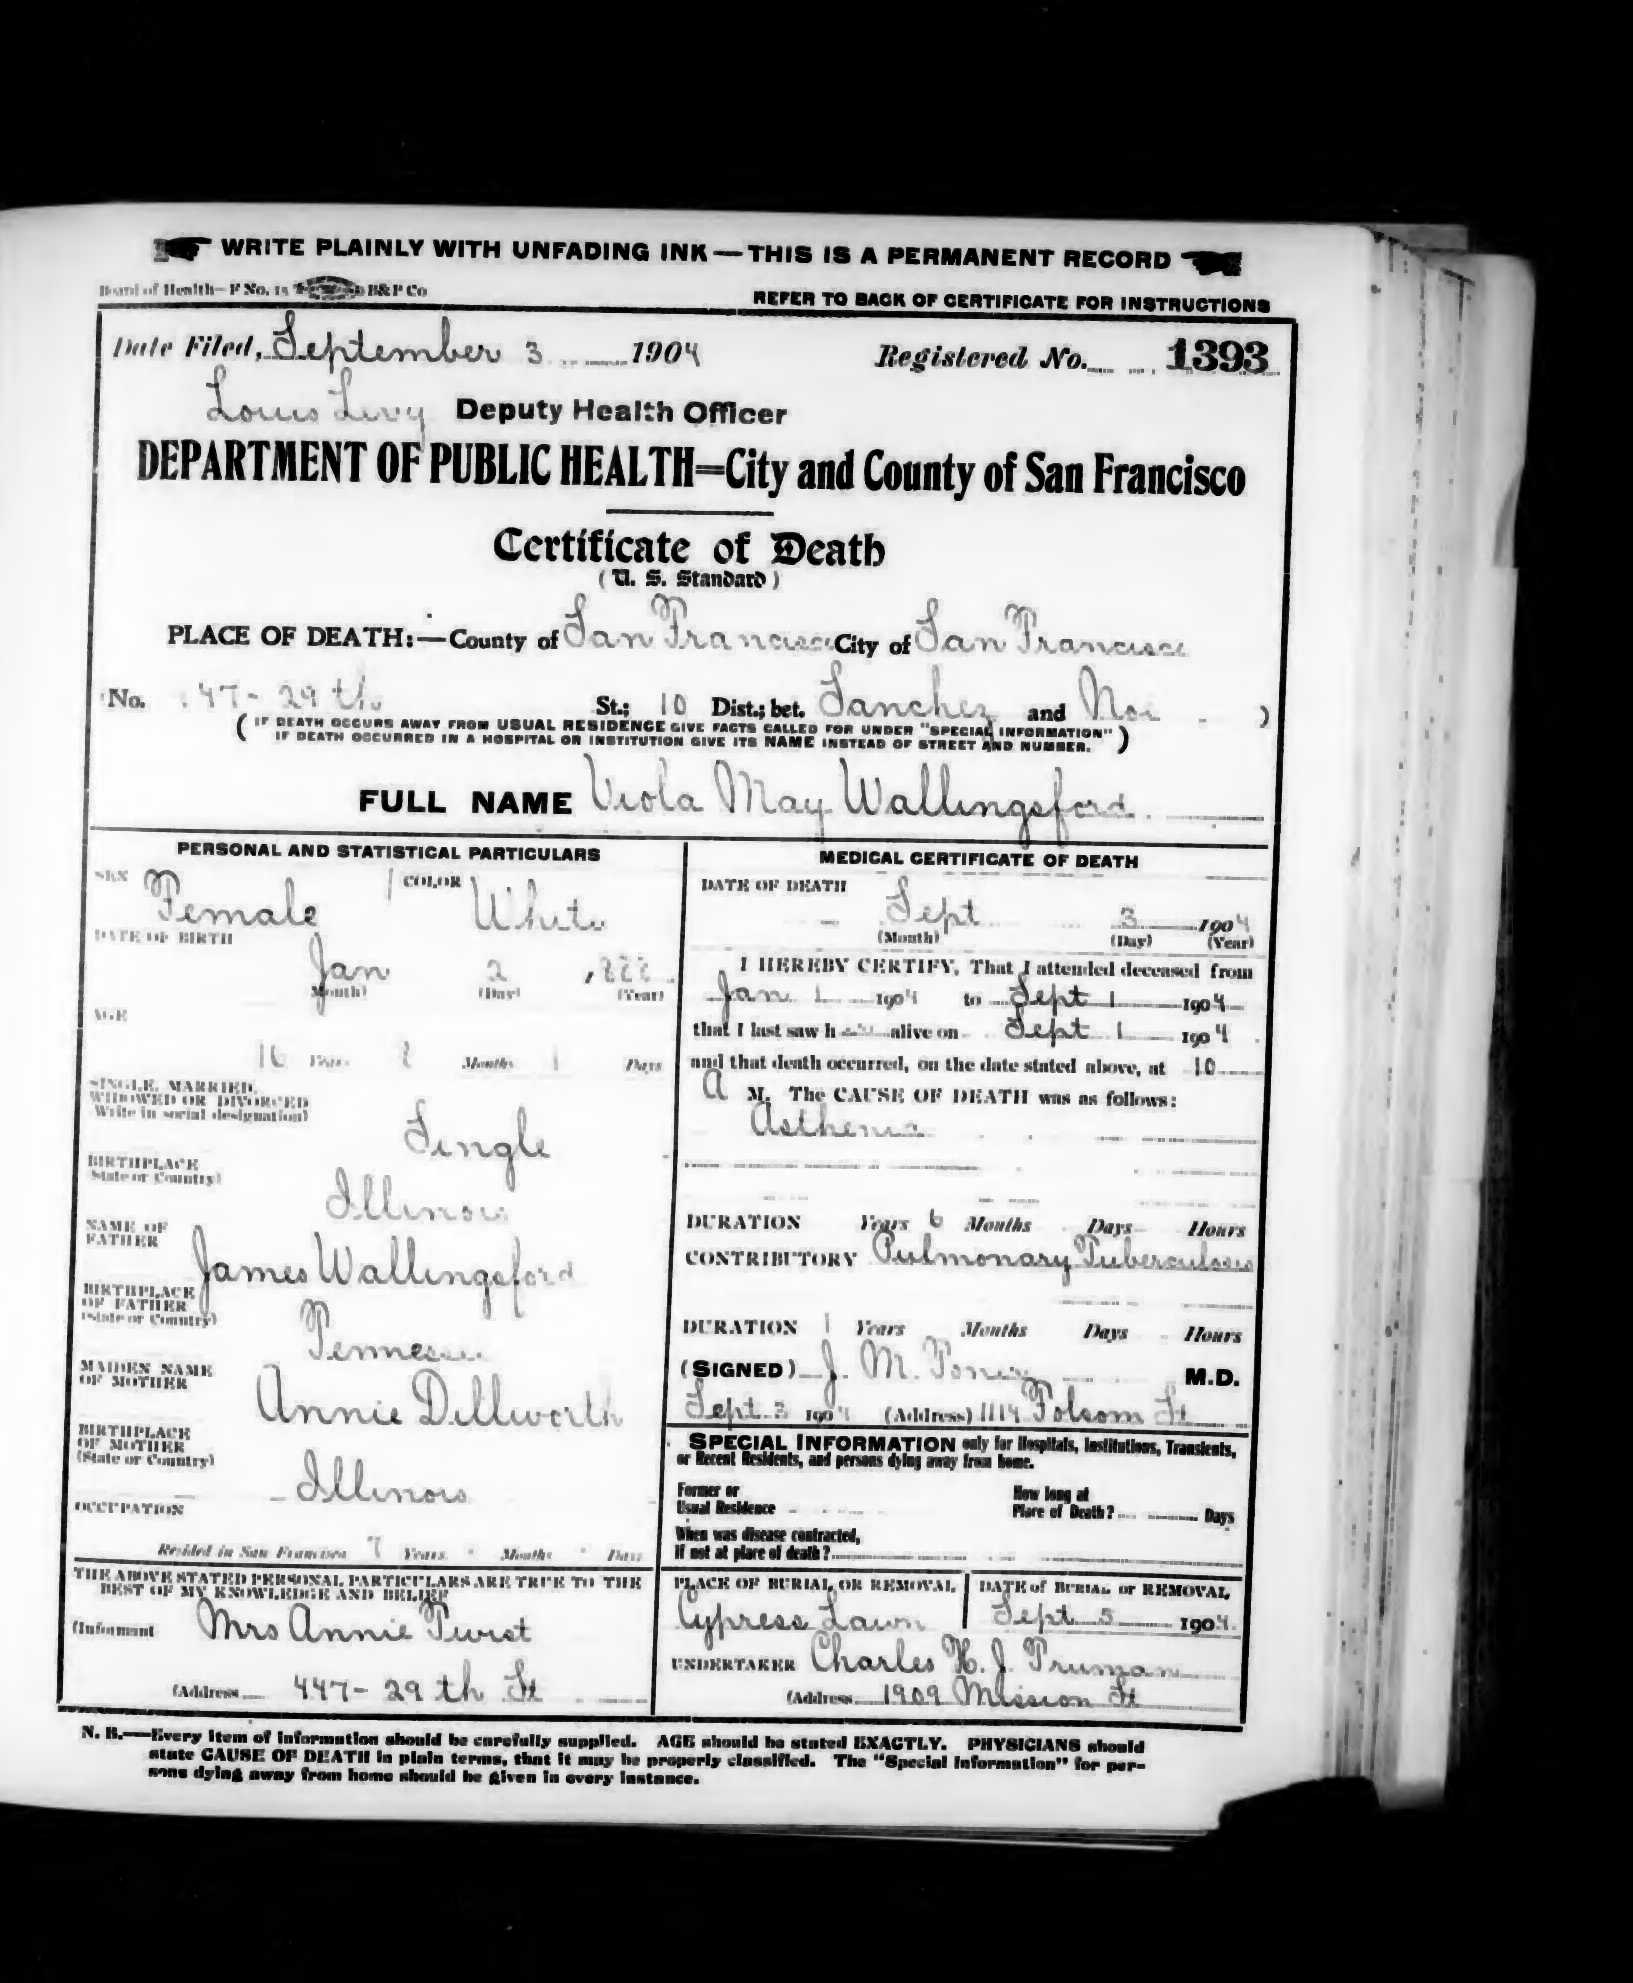 WRITE PLAINLY WITH UNFADING INK — THIS IS A PERMANENT RECORD
Board of Health—F No. 15 B&P Co
REFER TO BACK OF CERTIFICATE FOR INSTRUCTIONS
Date Filed, September 3 1904 Registered No. 1393
Louis Levy Deputy Health Officer
DEPARTMENT OF PUBLIC HEALTH=City and County of San Francisco
Certificate of Death
(U. S. Standard)
PLACE OF DEATH:—County of San Francisco City of San Francisco
No. 447- 29th St.; 10 Dist.; bet. Sanchez and Noe )
( IF DEATH OCCURS AWAY FROM USUAL RESIDENCE GIVE FACTS CALLED FOR UNDER "SPECIAL INFORMATION"
IF DEATH OCCURRED IN A HOSPITAL OR INSTITUTION GIVE ITS NAME INSTEAD OF STREET AND NUMBER. )
FULL NAME Viola May Wallingsford
PERSONAL AND STATISTICAL PARTICULARS
SEX Female COLOR White
DATE OF BIRTH
Jan 2 1888
(Month) (Day) (Year)
AGE
16 Years 8 Months 1 Days
SINGLE, MARRIED,
WIDOWED OR DIVORCED
(Write in social designation)
Single
BIRTHPLACE
(State or Country)
Illinois
NAME OF
FATHER
James Wallingsford
BIRTHPLACE
OF FATHER
(State or Country)
Tennessee
MAIDEN NAME
OF MOTHER
Annie Dillworth
BIRTHPLACE
OF MOTHER
(State or Country)
Illinois
OCCUPATION
Resided in San Francisco 7 Years - Months - Days
THE ABOVE STATED PERSONAL PARTICULARS ARE TRUE TO THE
BEST OF MY KNOWLEDGE AND BELIEF
(Informant Mrs Annie Twist
(Address 447- 29th St
MEDICAL CERTIFICATE OF DEATH
DATE OF DEATH
Sept 3 1904
(Month) (Day) (Year)
I HEREBY CERTIFY, That I attended deceased from
Jan 1 1904 to Sept 1 1904
that I last saw her alive on Sept 1 1904
and that death occurred, on the date stated above, at 10
A M. The CAUSE OF DEATH was as follows:
Asthenia
DURATION Years 6 Months Days Hours
CONTRIBUTORY Pulmonary Tuberculosis
DURATION 1 Years Months Days Hours
(SIGNED) J. M. M.D.
Sept 3 1904 (Address) 1114 Folsom St
SPECIAL INFORMATION only for Hospitals, Institutions, Transients,
or Recent Residents, and persons dying away from home.
Former or
Usual Residence
How long at
Place of Death? Days
When was disease contracted,
If not at place of death?
PLACE OF BURIAL OR REMOVAL
Cypress Lawn
DATE of BURIAL or REMOVAL
Sept 5 1904
UNDERTAKER Charles H. J. Truman
(Address 1909 Mission St
N. B.—Every item of information should be carefully supplied. AGE should be stated EXACTLY. PHYSICIANS should
state CAUSE OF DEATH in plain terms, that it may be properly classified. The "Special Information" for per-
sons dying away from home should be given in every instance.